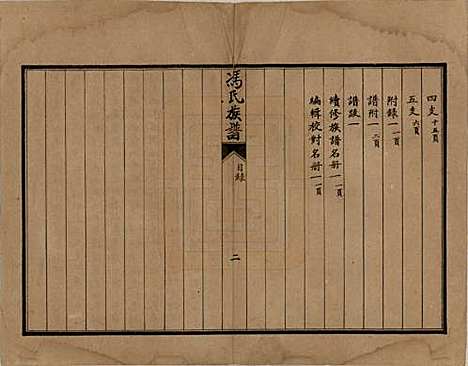 四支 十五頁
五支 六頁
附錄一 一頁
譜附一 二頁
譜跋一
續修族譜名冊一 一頁
編輯校對名冊一 一頁
馮氏族譜
目錄
二